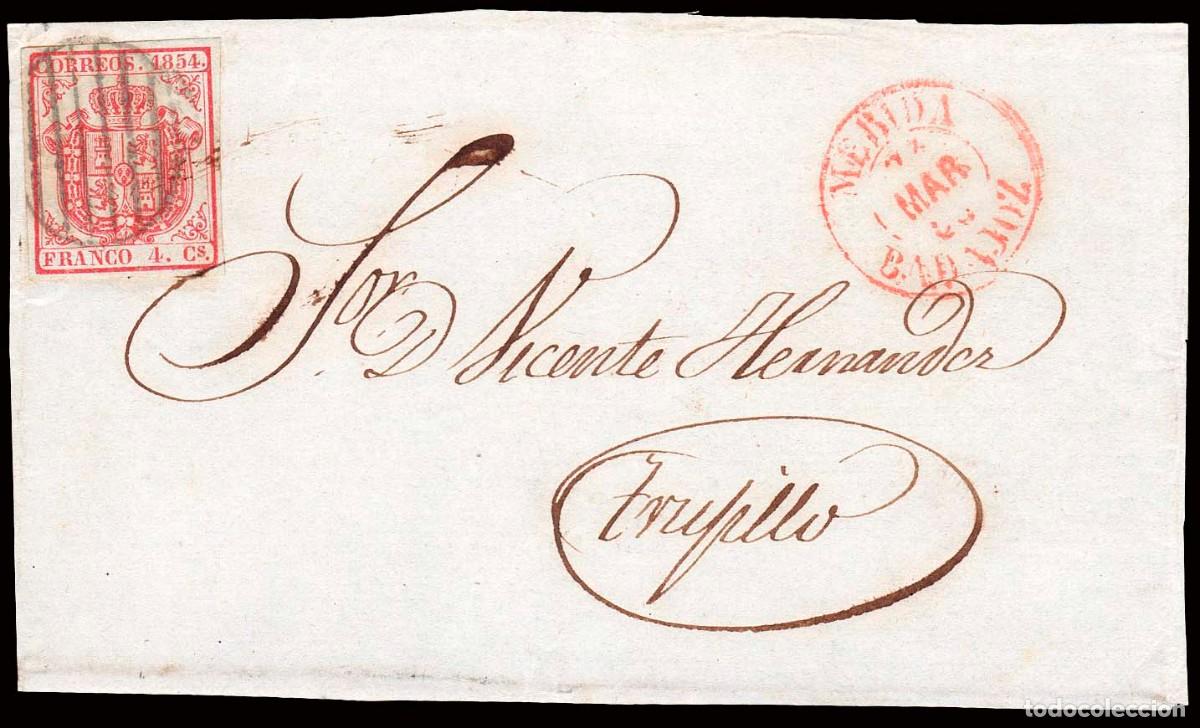 CORREOS. 1854.
FRANCO 4. Cs.
MERIDA
MAR
BADAJOZ
Sor. D Vicente Hernandez
Trujillo
todocoleccion